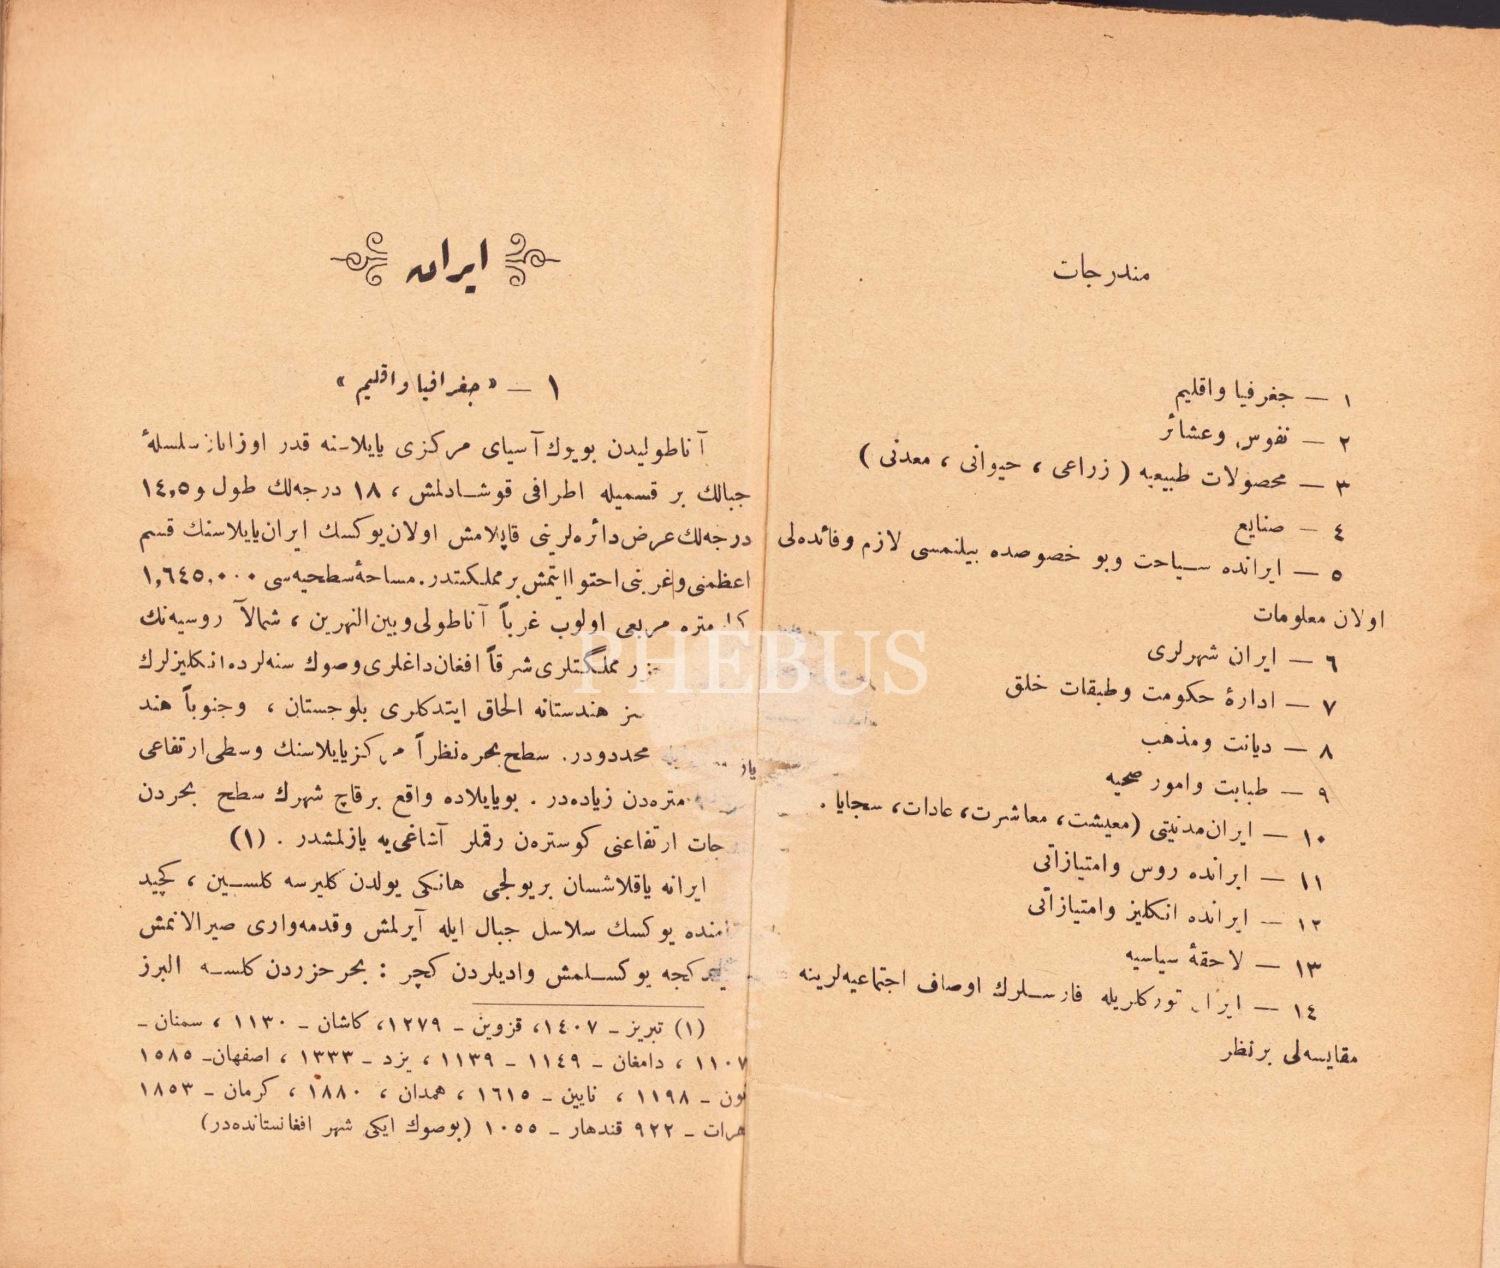 مندرجات
١ — جغرفيا واقليم
٢ — نفوس وعشائر
٣ — محصولات طبيعيه ( زراعى ، حيوانى ، معدنى )
٤ — صنايع
٥ — ايرانده سياحت وبو خصوصده بيلنمسى لازم وفائده‌لى
اولان معلومات
٦ — ايران شهرلرى
٧ — ادارۀ حكومت وطبقات خلق
٨ — ديانت ومذهب
٩ — طبابت وامور صحيه
١٠ — ايران مدنيتى (معيشت، معاشرت، عادات، سجايا .
١١ — ايرانده روس وامتيازاتى
١٢ — ايرانده انكليز وامتيازاتى
١٣ — لاحقۀ سياسيه
١٤ — ايران توركلريله فارسلرك اوصاف اجتماعيه‌لرينه
مقايسه‌لى برنظر
ايران
١ — «جغرافيا واقليم»
آناطوليدن بويوك آسياى مركزى يايلاسنه قدر اوزانان سلسلۀ
جبالك بر قسميله اطرافى قوشادلمش ، ١٨ درجه‌لك طول و١٤,٥
درجه‌لك عرض دائره‌لرينى قاپلامش اولان يوكسك ايران يايلاسنك قسم
اعظمنى وغربنى احتوا ايتمش بر مملكتدر. مساحۀ سطحيه‌سى ١,٦٤٥,٠٠٠
متره مربعى اولوب غرباً آناطولى وبين النهرين ، شمالاً روسيه‌نك
مملكتلرى شرقاً افغان داغلرى وصوك سنه‌لرده انكليزلرك
هندستانه الحاق ايتدكلرى بلوجستان ، وجنوباً هند
محدددر. سطح بحره نظراً مركز يايلاسنك وسطى ارتفاعى
متره‌دن زياده‌در . بويايلاده واقع برقاچ شهرك سطح بحردن
ارتفاعنى كوسترەن رقملر آشاغى‌يه يازلمشدر . (١)
ايرانه ياقلاشان بريولجى هانكى يولدن كليرسه كلسين ، كچيد
يوكسك سلاسل جبال ايله آيرلمش وقدمه‌وارى صيرالانمش
يوكسلمش واديلردن كچر : بحر حزردن كلسه البرز
(١) تبريز ـ ١٤٠٧، قزوين ـ ١٢٧٩، كاشان ـ ١١٣٠ ، سمنان ـ
١١٠٧ ، دامغان ـ ١١٤٩ ـ ١١٣٩ ، يزد ـ ١٣٣٣ ، اصفهان ـ ١٥٨٥
ـ ١١٩٨ ، نايين ـ ١٦١٥ ، همدان ، ١٨٨٠ ، كرمان ـ ١٨٥٣
هرات ـ ٩٢٢ قندهار ـ ١٠٥٥ (بوصوك ايكى شهر افغانستانده‌در)
PHEBUS